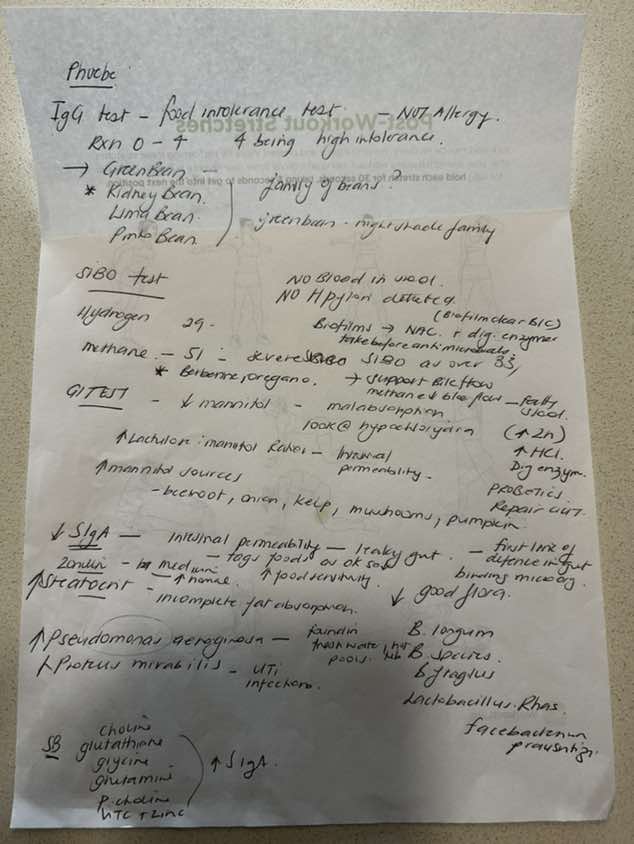 Phoebe:
IgG test - food intolerance test - NOT Allergy.
Rxn 0 - 4 4 being high intolerance.
→ Green Bean - family of beans?
* Kidney Bean.
Lima Bean. green bean - nightshade family
Pinto Bean
Post-Workout Stretches
SIBO test NO Blood in stool.
NO H pylori detected.
(Biofilm clear BIC)
Hydrogen 29. Biofilms → NAC. + dig. enzymes
take before antimicrobials.
methane. - 51 = severe SIBO as over 33,
* Berberine, oregano. → Support Bile flow
methane ↓ bile flow - fatty stool.
GI TEST - ↓ mannitol - malabsorption
look @ hypochlorydria (↑ Zn)
↑ Lactulose : manitol Ratio - Intestinal permeability.
↑ HCl.
Dig enzym.
↑ mannitol sources
PROBIOTICS.
- beetroot, onion, kelp, mushrooms, pumpkin.
Repair GUT.
↓ SIgA - Intestinal permeability - leaky gut. - first line of
defence in gut
Zonulin - in medium - tags foods as ok so
↑ food sensitivity. binding microorg.
↑ Steatocrit -
incomplete fat absorption. ↓ good flora.
↑ Pseudomonas aeroginosa - found in
fresh water, hot
pools.
B. longum
B. species.
↑ Proteus mirabilis - UTI
infections.
B fragilus
Lactobacillus. Rhas.
faecobacterium
prausnitzi.
SB
choline
glutathione
glycine
glutamine
P. choline
+ Zinc
↑ SIgA.